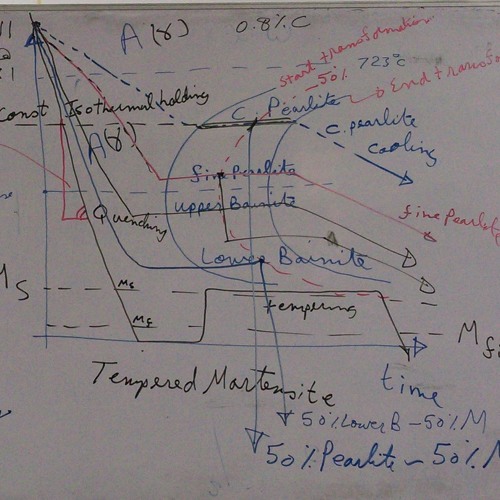 A(γ) 0.8% C
Start transformation
50%
723°C
End transfor
Const Isothermal holding
C. Pearlite
C. pearlite
cooling
A(γ)
fine Pearlite
upper Bainite
Quenching
fine Pearlite
Lower Bainite
Ms
Ms
tempering
Mf
M f
Tempered Martensite
time
50% Lower B - 50% M
50% Pearlite - 50% M